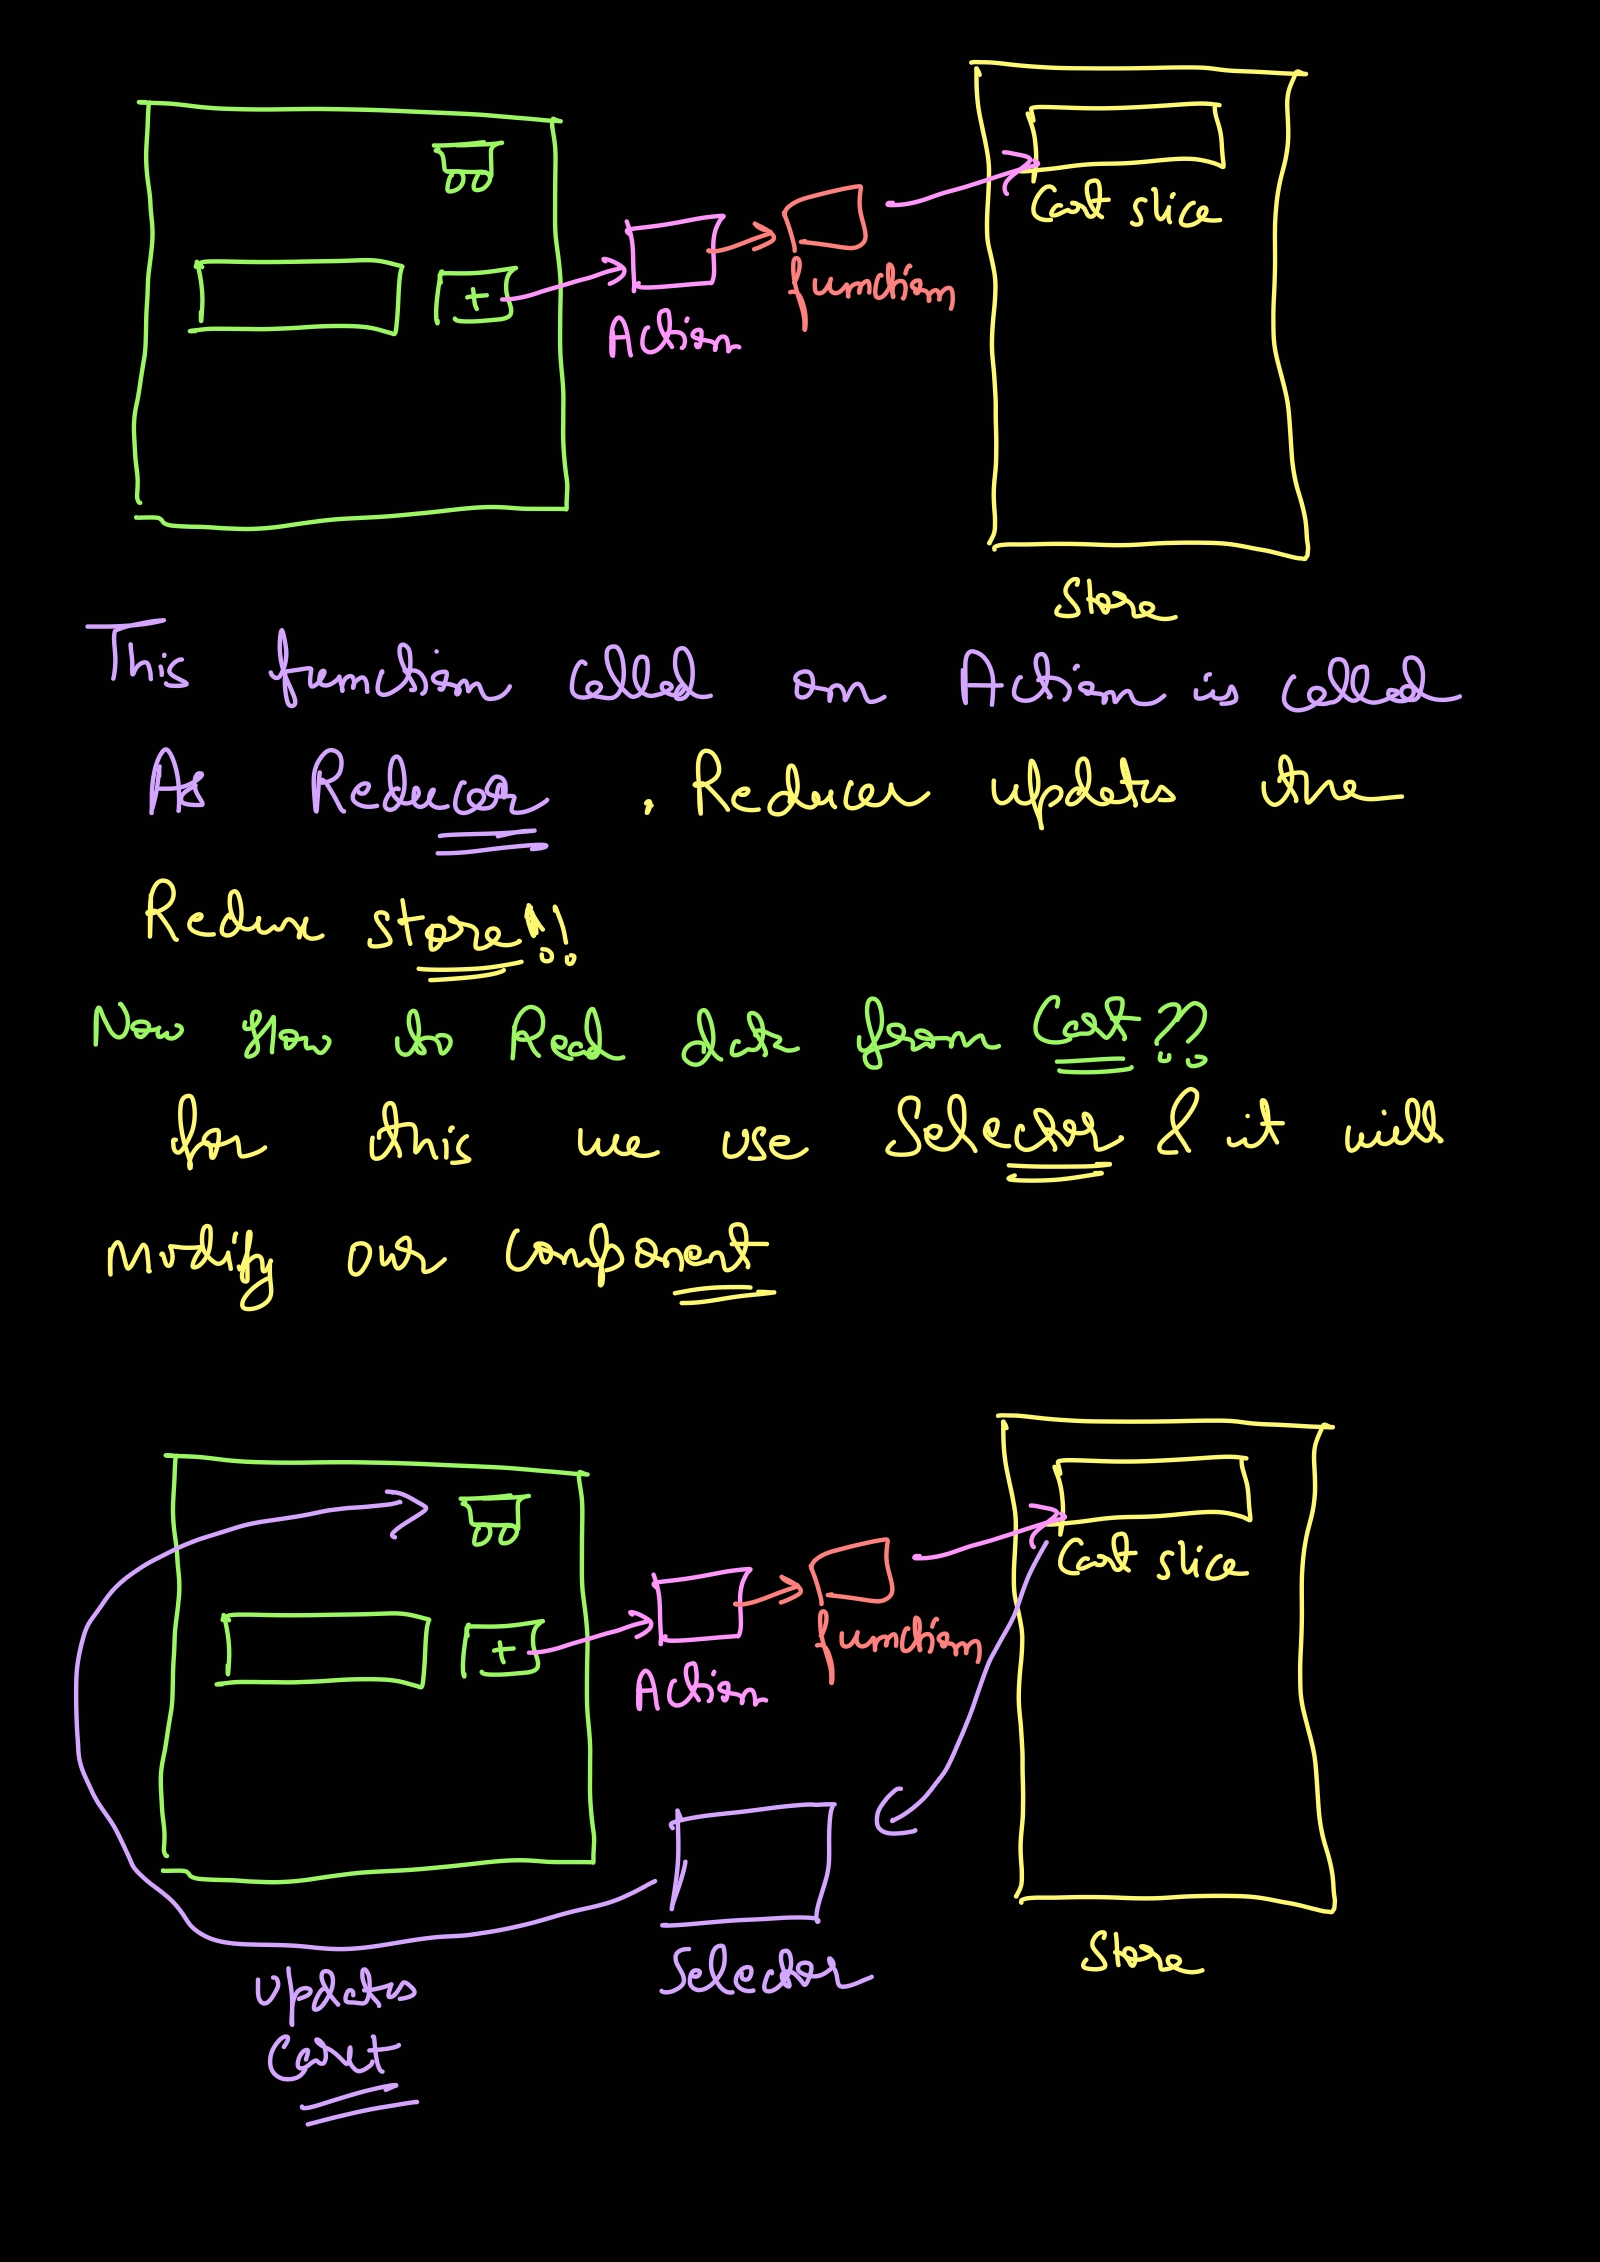 +
Cart slice
Action
function
Store
This function called on Action is called
As Reducer . Reducer updates the
Redux store!!
Now How to Read data from Cart??
for this we use Selector & it will
modify our component
+
Cart slice
Action
function
Selector
Store
updates
Cart